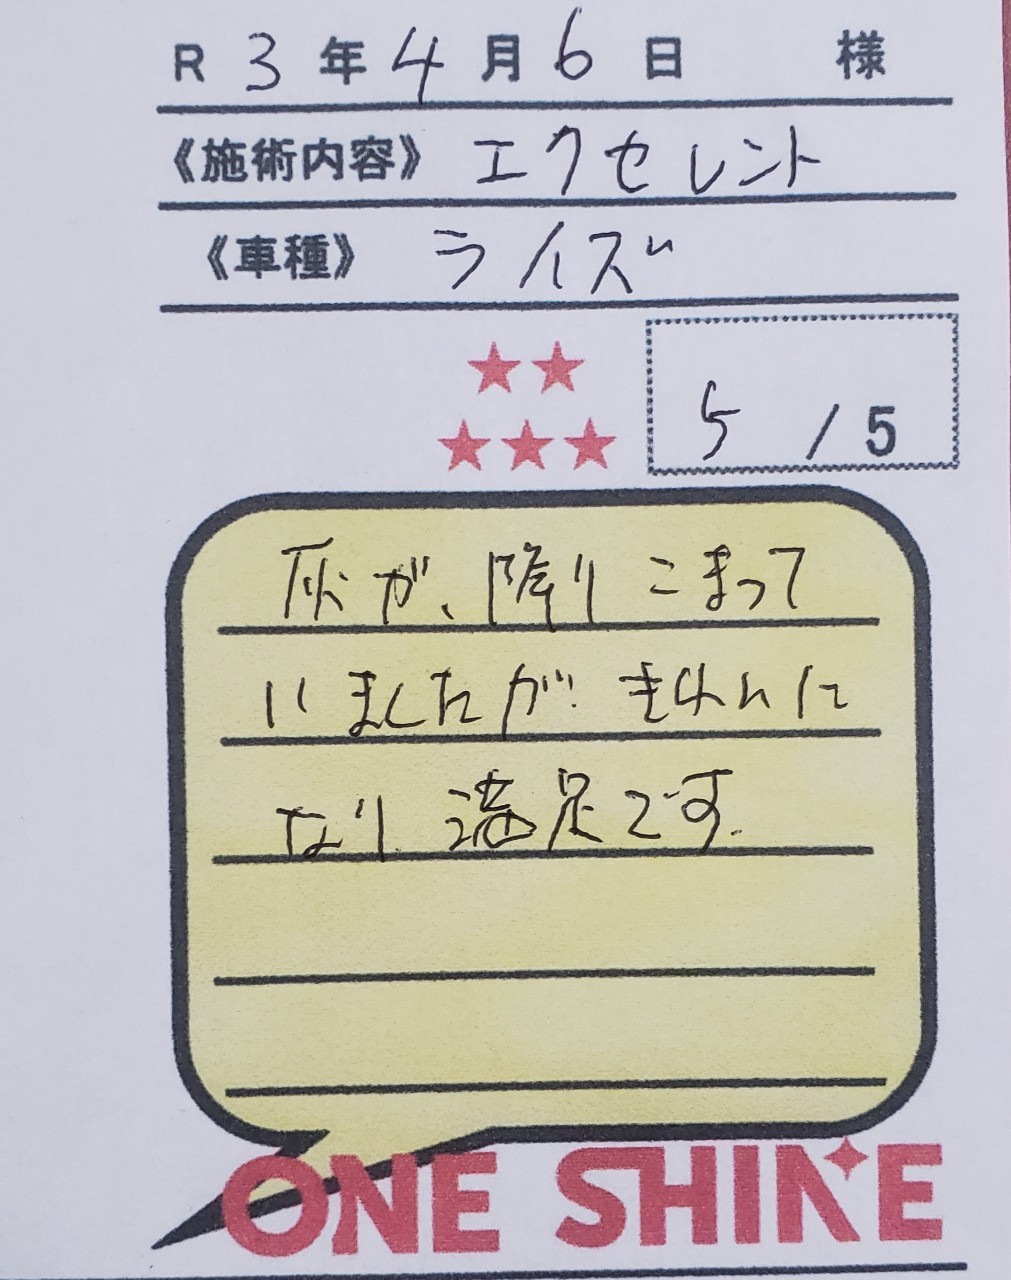 R 3年4月6日 様
《施術内容》 エクセレント
《車種》 ライズ
5 / 5
灰が、降りこまって
いましたがきれいに
なり 満足です.
ONE SHINE